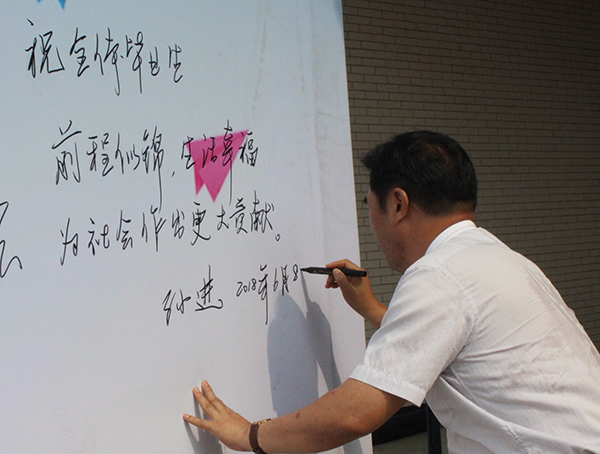 祝全体毕业生
前程似锦，生活幸福
为社会作出更大贡献。
孙进 2018年6月8